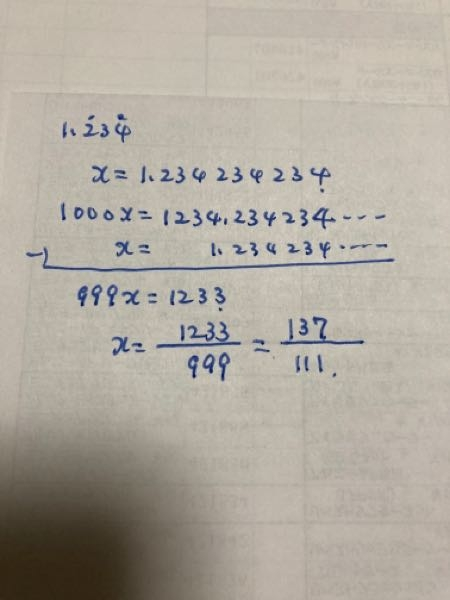 1.2̇34̇
x = 1.234 234 234
1000x = 1234.234234----
-) x = 1.234234----
999x = 1233
x = 1233/999 = 137/111.